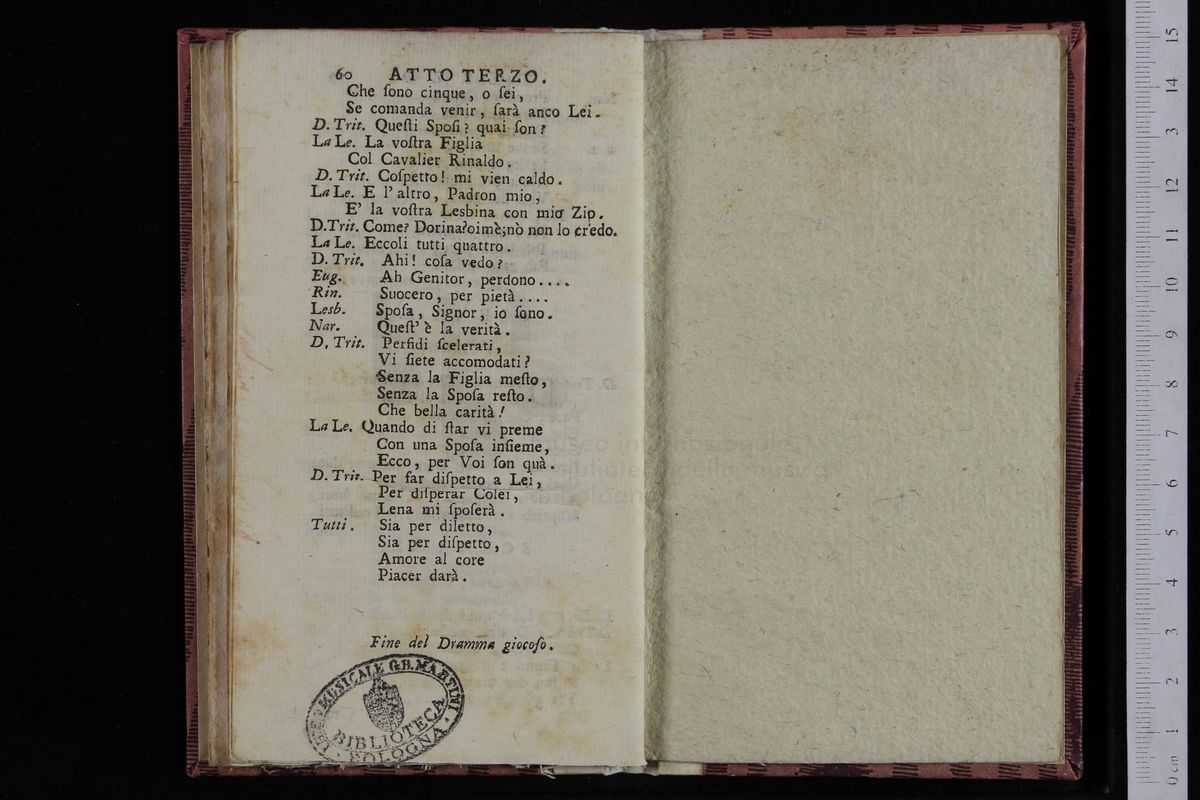 60 ATTO TERZO.
Che ſono cinque, o ſei,
Se comanda venir, ſarà anco Lei.
D. Trit. Queſti Spoſi? quai ſon?
La Le. La voſtra Figlia
Col Cavalier Rinaldo.
D. Trit. Coſpetto! mi vien caldo.
La Le. E l'altro, Padron mio,
E' la voſtra Lesbina con mio Zio.
D. Trit. Come? Dorina? oimè; nò non lo credo.
La Le. Eccoli tutti quattro.
D. Trit. Ahi! coſa vedo?
Eug. Ah Genitor, perdono....
Rin. Suocero, per pietà....
Lesb. Spoſa, Signor, io ſono.
Nar. Queſt' è la verità.
D, Trit. Perfidi ſcelerati,
Vi ſiete accomodati?
Senza la Figlia meſto,
Senza la Spoſa reſto.
Che bella carità!
La Le. Quando di ſtar vi preme
Con una Spoſa inſieme,
Ecco, per Voi ſon quà.
D. Trit. Per far diſpetto a Lei,
Per diſperar Colei,
Lena mi ſpoſerà.
Tutti. Sia per diletto,
Sia per diſpetto,
Amore al core
Piacer darà.
Fine del Dramma giocoſo.
MUSICALE G.B. MARTINI
BIBLIOTECA
BOLOGNA
0 cm 1 2 3 4 5 6 7 8 9 10 11 12 3 14 15